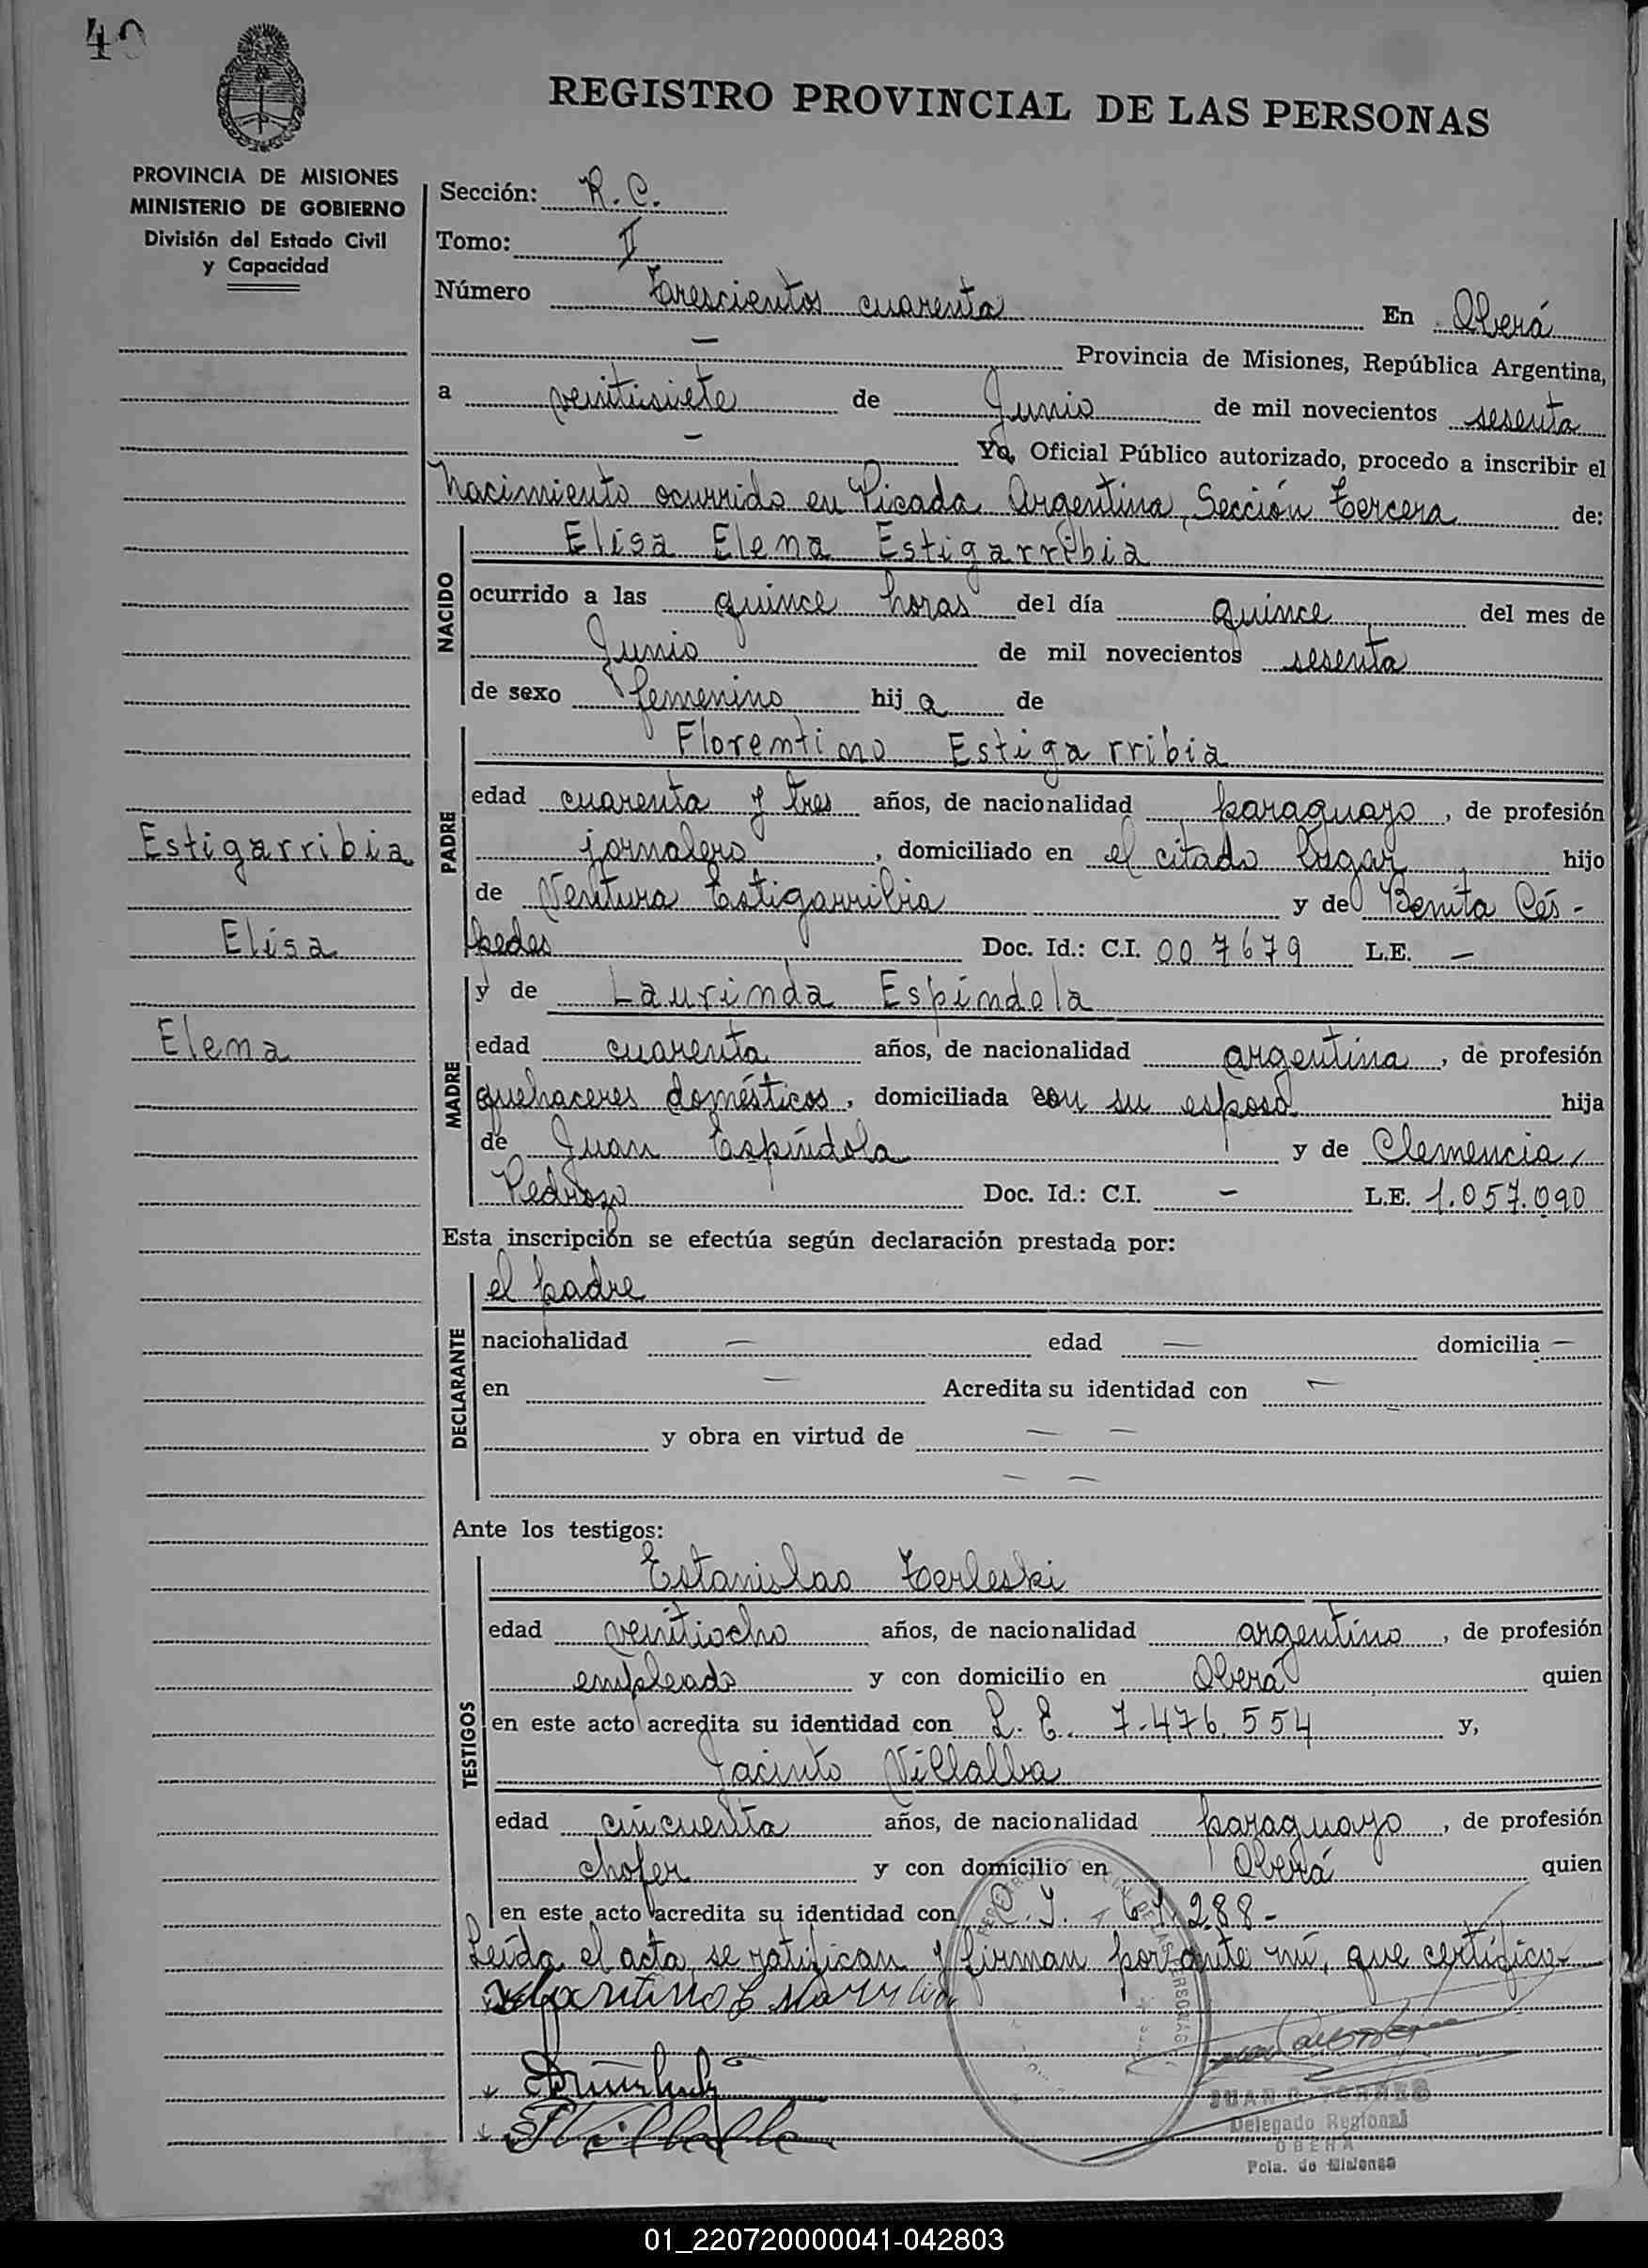 40
REGISTRO PROVINCIAL DE LAS PERSONAS
PROVINCIA DE MISIONES
MINISTERIO DE GOBIERNO
División del Estado Civil
y Capacidad
Sección: R. C.
Tomo: II
Número Trescientos cuarenta En Oberá
— Provincia de Misiones, República Argentina,
a veintisiete de Junio de mil novecientos sesenta
— Yo, Oficial Público autorizado, procedo a inscribir el
Nacimiento ocurrido en Picada Argentina, Sección tercera de:
NACIDO
Elisa Elena Estigarribia
ocurrido a las quince horas del día quince del mes de
Junio de mil novecientos sesenta
de sexo femenino hija de
PADRE
Florentino Estigarribia
edad cuarenta y tres años, de nacionalidad paraguayo, de profesión
jornalero, domiciliado en el citado lugar hijo
de Ventura Estigarribia y de Benita Cés-
pedes Doc. Id.: C.I. 007679 L.E. —
Estigarribia
Elisa
Elena
MADRE
y de Laurinda Espíndola
edad cuarenta años, de nacionalidad argentina, de profesión
quehaceres domésticos, domiciliada con su esposo hija
de Juan Espíndola y de Clemencia
Pedrozo Doc. Id.: C.I. — L.E. 1.057.090
Esta inscripción se efectúa según declaración prestada por:
DECLARANTE
el padre
nacionalidad — edad — domicilia —
en — Acredita su identidad con —
y obra en virtud de — —
— —
Ante los testigos:
TESTIGOS
Estanislao Terleski
edad veintiocho años, de nacionalidad argentino, de profesión
empleado y con domicilio en Oberá quien
en este acto acredita su identidad con L. E. 7.476.554 y,
Jacinto Villalba
edad cincuenta años, de nacionalidad paraguayo, de profesión
chofer y con domicilio en Oberá quien
en este acto acredita su identidad con C. I. 288-
Leída el acta, se ratifican y firman por ante mí, que certifico-
JUAN C. TORRES
Delegado Regional
OBERA
Pcia. de Misiones
01_220720000041-042803